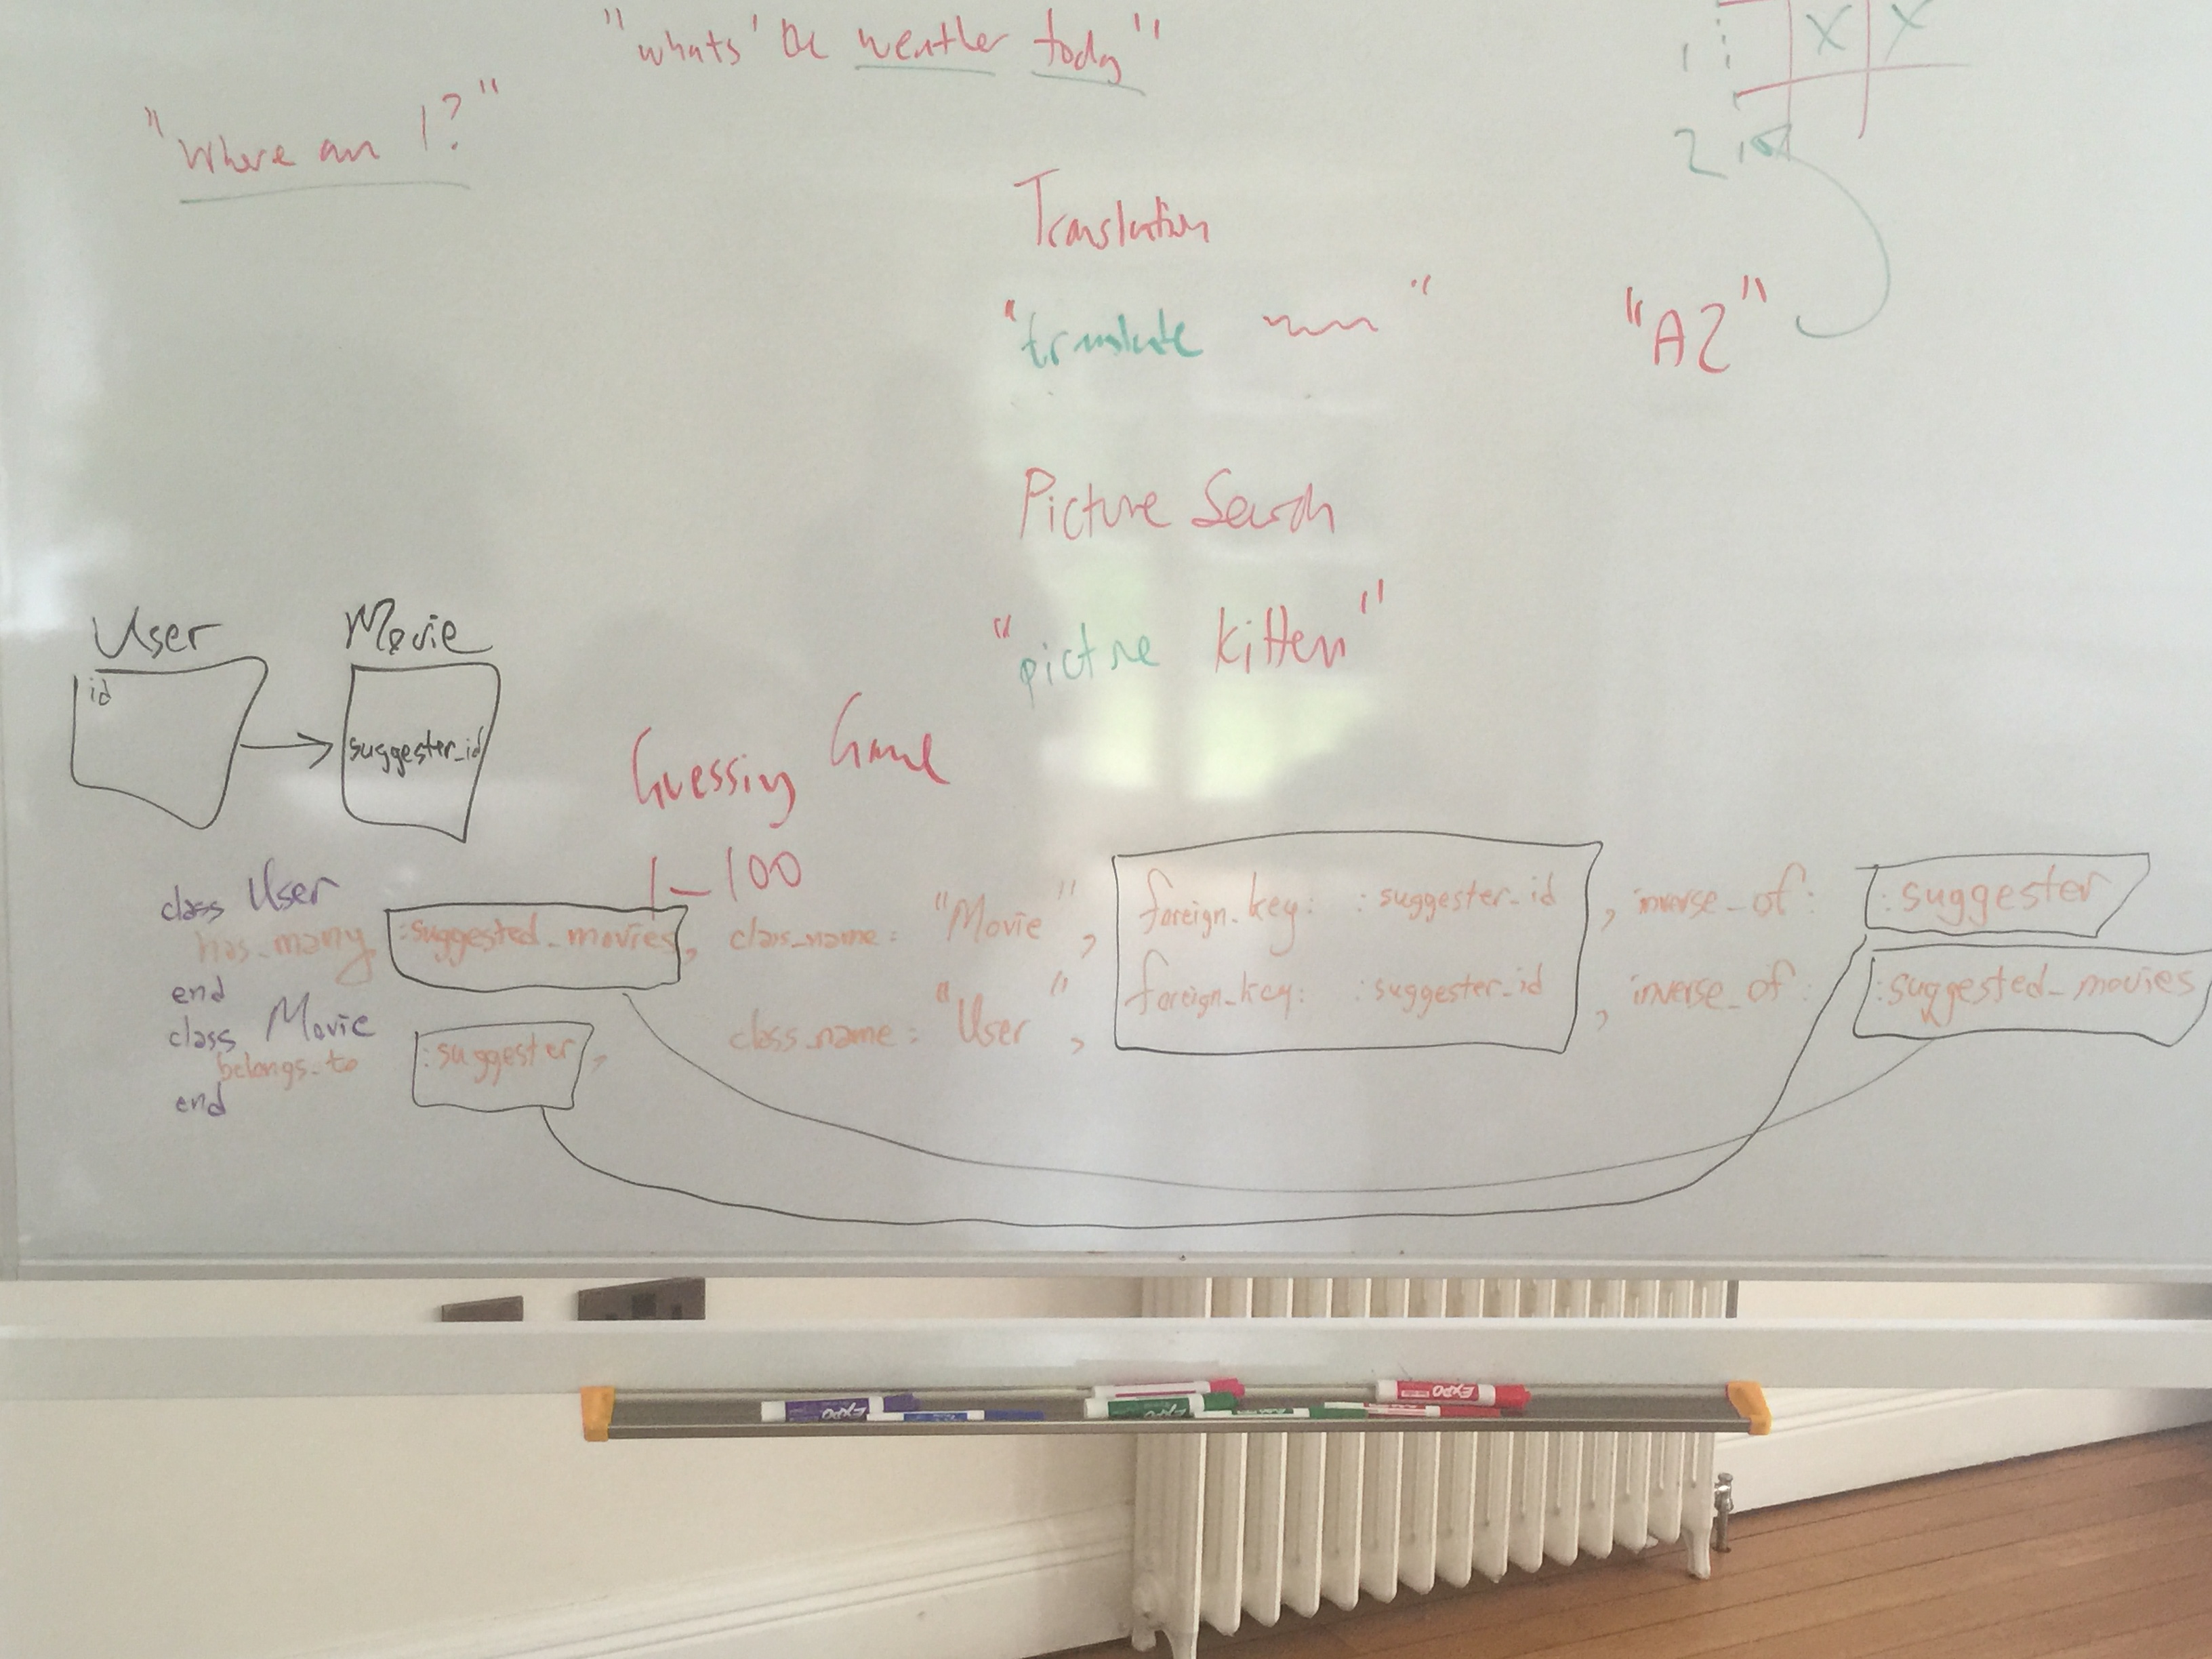 "whats' the weather today"
"Where am I?"
1 X X
2
Translation
"translate "
"A2"
Picture Search
"picture kitten"
User Movie
id
suggester_id
Guessing Game
1-100
class User
has_many :suggested_movies, class_name: "Movie", foreign_key: :suggester_id, inverse_of: :suggester
end
class Movie
belongs_to :suggester, class_name: "User", foreign_key: :suggester_id, inverse_of: :suggested_movies
end
EXPO
EXPO
EXPO